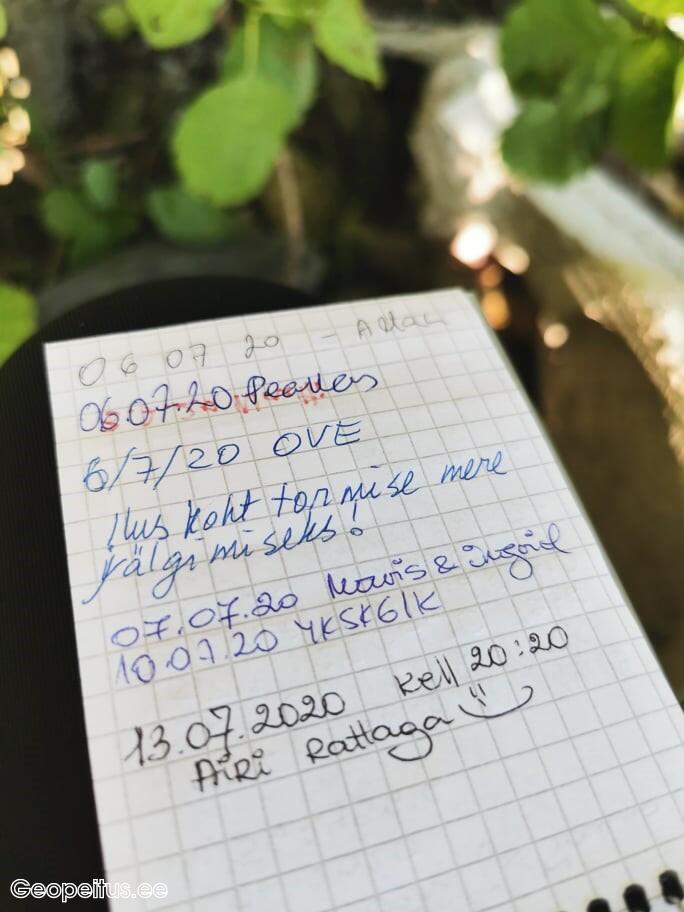 06 07 20 - Allan
06.07.20
6/7/20 OVE
Ilus koht tormise mere
jälgimiseks!
07.07.20 Mowis & Ingrid
10.07.20 YKSK6IK
13.07.2020 Kell 20:20
AiRi Rattaga
Geopeitus.ee